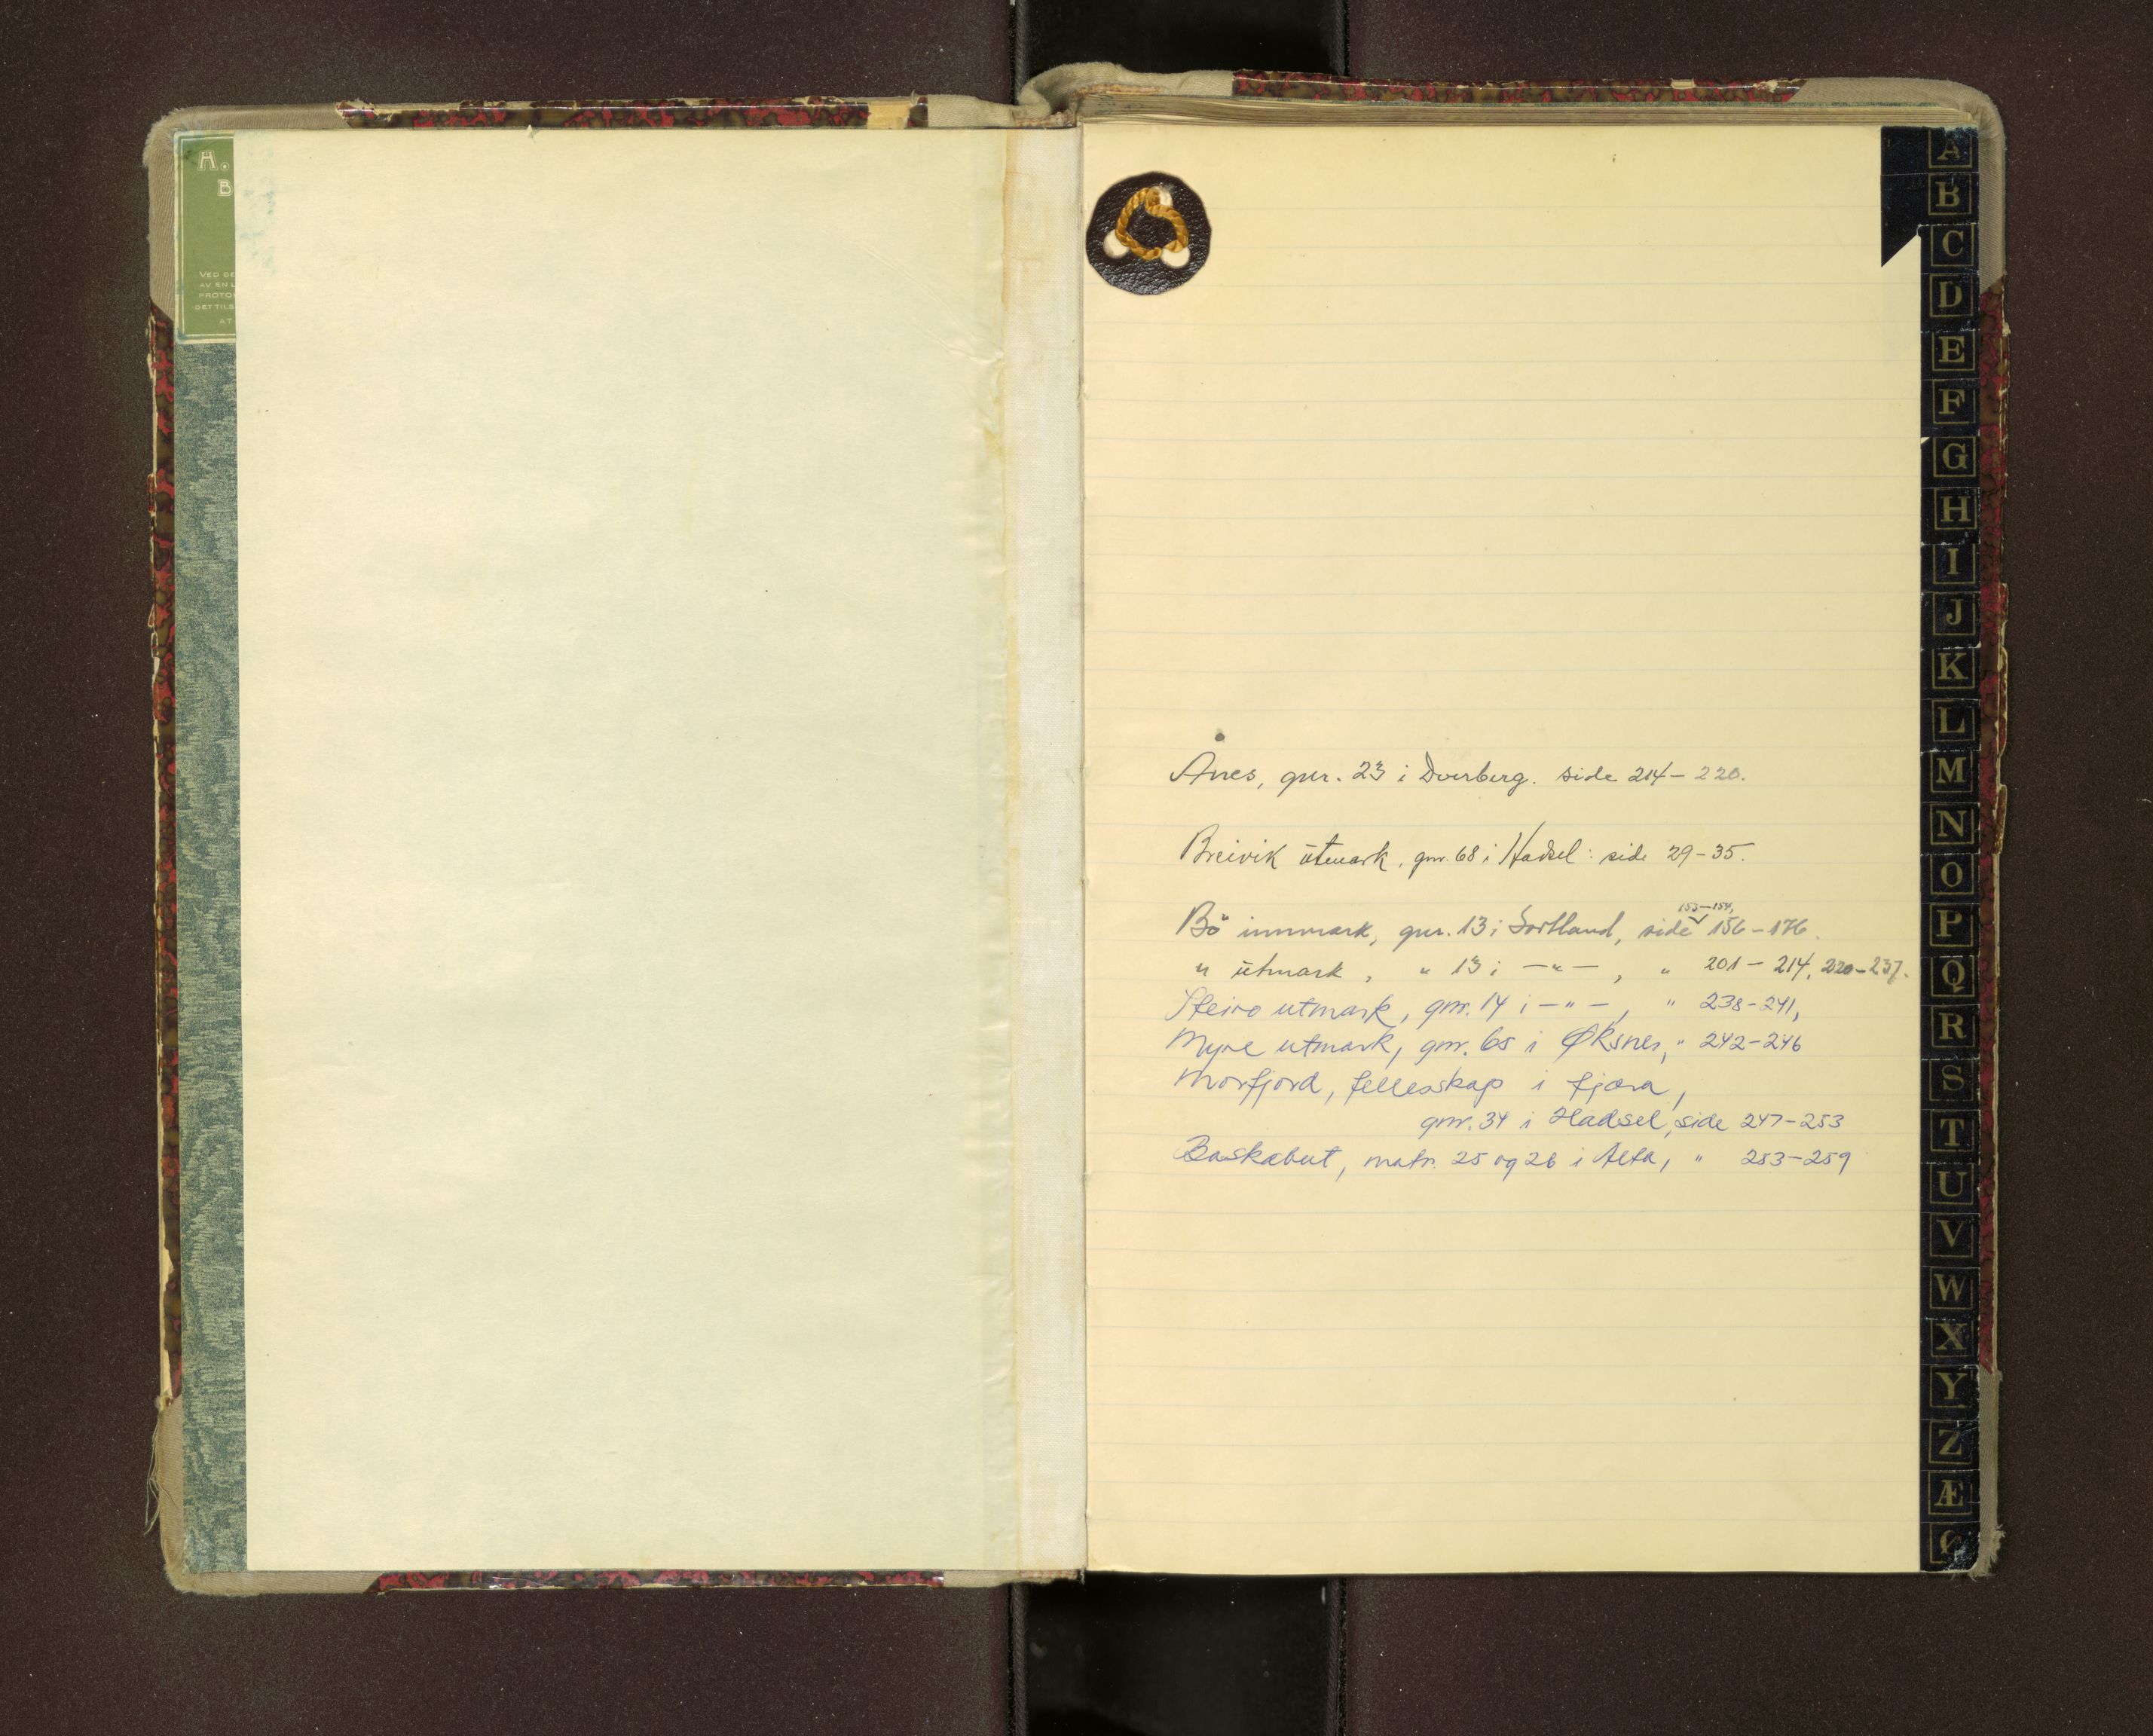 A.
B
VED DE
AV EN L
PROTO
DET TILS
AT
Ånes, gnr. 23 i Dverberg. side 214-220.
Breivik ūtmark, gnr. 68 i Hadsel: side 29-35.
153-154,
Bö innmark, gnr. 13 i Sortland, side 156-176.
" ūtmark, " 13 i -"-, " 201-214, 220-237.
Steiro utmark, gnr. 14 i -"-, " 238-241,
Myre utmark, gnr. 65 i Øksnes, " 242-246
Morfjord, fellesskap i fjæra,
gnr. 34 i Hadsel, side 247-253
Baskabut, matr. 25 og 26 i Alta, " 253-259
A
B
C
D
E
F
G
H
I
J
K
L
M
N
O
P
Q
R
S
T
U
V
W
X
Y
Z
Æ
Ø